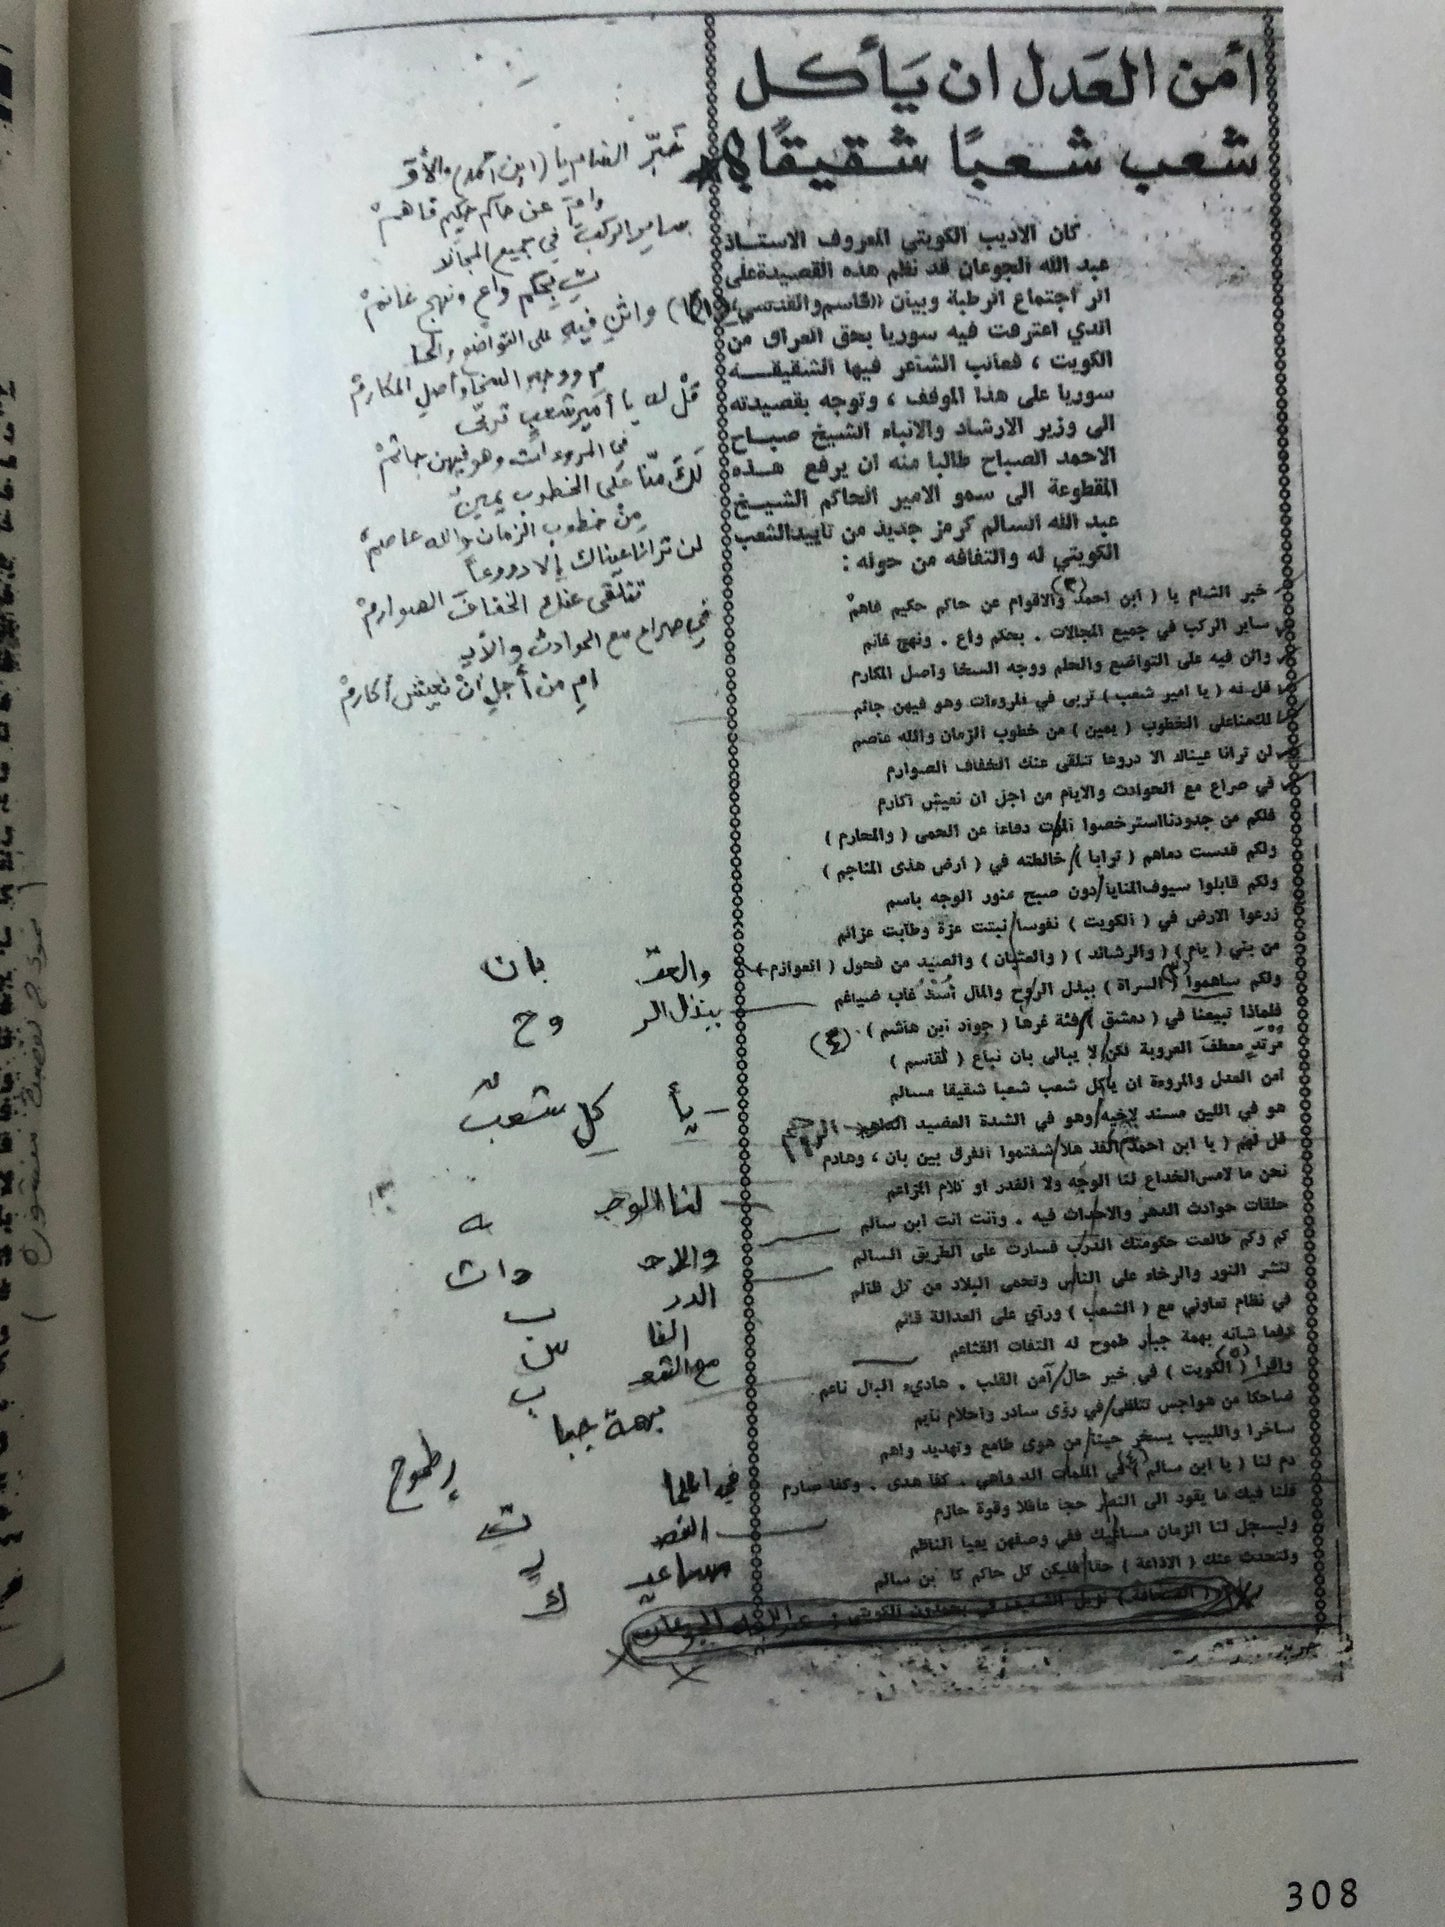 أمن العدل ان يأكل
شعب شعبًا شقيقًا؟
كان الاديب الكويتي المعروف الاستاذ
عبد الله الجوعان قد نظم هذه القصيدة على
اثر اجتماع الرطبة وبيان ((قاسم والقدسي))
الذي اعترفت فيه سوريا بحق العراق من
الكويت ، فعاتب الشاعر فيها الشقيقـــه
سوريا على هذا الموقف ، وتوجه بقصيدته
الى وزير الارشاد والانباء الشيخ صبـاح
الاحمد الصباح طالبا منه ان يرفع هـذه
المقطوعة الى سمو الامير الحاكم الشيـخ
عبد الله السالم كرمز جديد من تاييد الشعب
الكويتي له والتفافه من حوله :
خبر الشام يا ( ابن احمد والاقوام عن حاكم حكيم فاهم
ساير الركب في جميع المجالات . بحكم واع . ونهج غانم
واثن فيه على التواضع والحلم ووجه السخا واصل المكارم
قل له ( يا امير شعب ) تربى في المروءات وهو فيهن جاثم
لك منا على الخطوب ( يمين ) من خطوب الزمان والله عاصم
لن ترانا عيناك الا دروعا تتلقى عنك الخفاف الصوارم
في صراع مع الحوادث والايام من اجل ان نعيش اكارم
فلكم من جدودنا استرخصوا الموت دفاعا عن الحمى ( والمحارم )
ولكم قدست دماهم ( ترابا ) خالطته في ( ارض هذى المناجم )
ولكم قابلوا سيوف المنايا دون صبح منور الوجه باسم
زرعوا الارض في ( الكويت ) نفوسا نبتت عزة وطابت عزائم
من بني ( يام ) ( والرشائد ) ( والعتبان ) والصيد من فحول ( العوازم )
ولكم ساهموا ( السراة ) ببذل الروح والمال أسد غاب ضياغم
فلماذا تبيعنا في ( دمشق ) فئة غرها ( جواد ابن هاشم ) (٤)
مرتد معطف العروبة لكن لا يبالى بان نباع ( لقاسم )
امن العدل والمروءة ان يأكل شعب شعبا شقيقا مسالم
هو في اللين مسند لاخيه وهو في الشدة العضيد
قل لهم ( يا ابن احمد ) الفذ هلا شفتموا الفرق بين بان ، وهادم
نحن ما لامس الخداع لنا الوجه ولا الغدر او كلام المزاعم
حلقات حوادث الدهر والاحداث فيه . وانت انت ابن سالم
كم وكم طالعت حكومتك الدرب فسارت على الطريق السالم
لتشر النور والرخاء على الناس وتحمى البلاد من كل ظالم
في نظام تعاوني مع ( الشعب ) ورأي على العدالة قائم
رفعا شانه بهمة جبار طموح له التفات القشاعم
واقرا ( الكويت ) في خير حال آمن القلب . هادىء البال ناعم
ضاحكا من هواجس تتلظى في رؤى سادر واحلام نايم
ساخرا واللبيب يسخر حينا من هوى طامع وتهديد واهم
دم لنا ( يا ابن سالم ) في الملمات الدواهي . كفا هدى . وكفا صارم
فلنا فيك ما يقود الى النصر حجا عاقلا وقوة حازم
وليسجل لنا الزمان مساعيك ففي وصفهن يعيا الناظم
ولتحدث عنك ( الاذاعة ) حقا فليكن كل حاكم كا بن سالم
عبدالله الجوعان
تخبّر الشام يا (ابن احمد) والأقو
وام عن حاكم حكيم فاهمْ
ساير الركب في جميع المجالا
ت بحكم واعٍ ونهج غانمْ
واثنِ فيه على التواضع والحلـ
م ووجه السخا وأصل المكارمْ
قلْ له يا أمير شعبٍ تربّى
في المروءات وهو فيهن جاثمْ
لكَ منّا على الخطوب يمينٌ
مِن خطوب الزمان والله عاصمْ
لن ترانا عيناك إلا دروعاً
تتلقى عنك الخفافَ الصوارمْ
في صراع مع الحوادث والأيـ
ام من أجلِ انْ نعيش أكارمْ
والعتـ بان
ببذل الر وح
يأ كل شعبٌ
لنا الوجـ ه
والاحـ داث
الدر ب
النا س
مع الشعـ ب
بهمة جبا ر طموح
في الملما ت
النصـ ر
مساعيـ ك
308